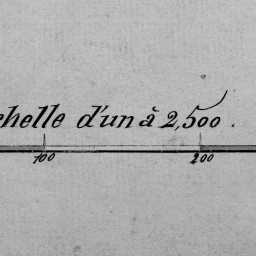 chelle d'un à 2,500.
100 200